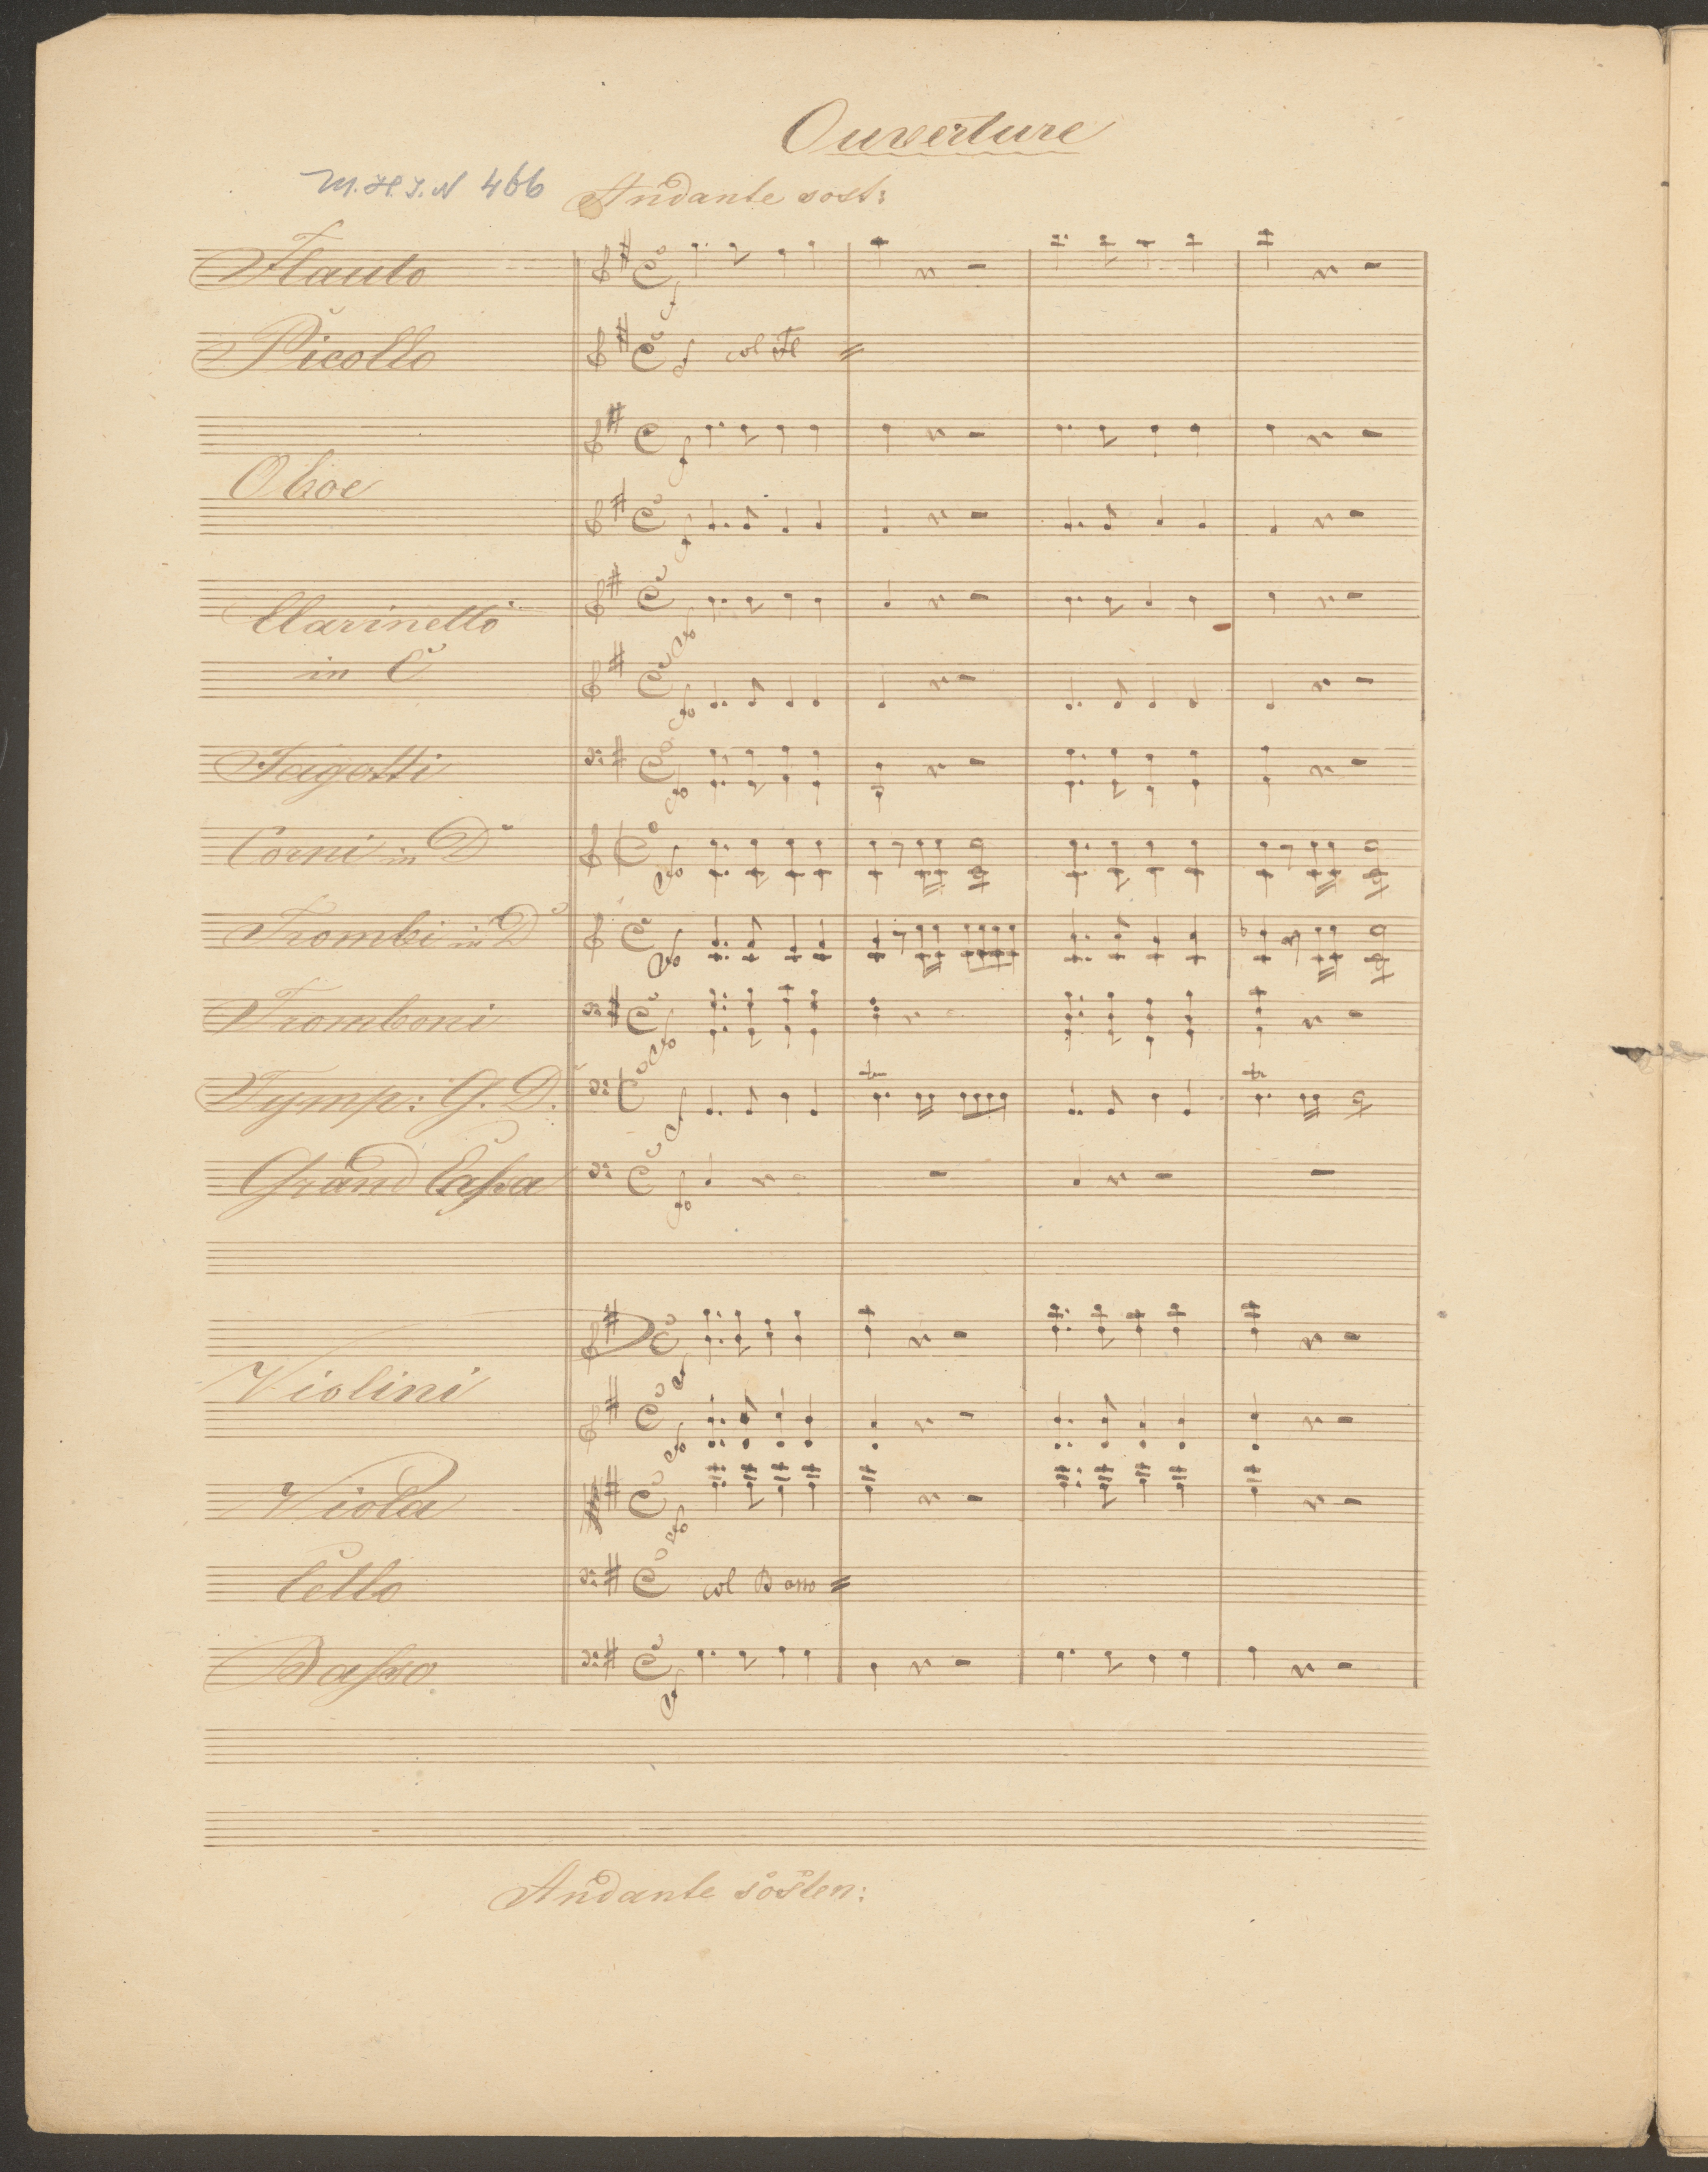 Ouverture
M.H.I.N 466
Andante sost:
Flauto
Picollo
col Fl
Oboe
Clarinetto
in C
Fagotti
Corni in D
Trombi in D
Tromboni
Tymp: G. D.
tr
tr
Grand Caſsa
Violini
Viola
Cello
col Basso
Baſso.
Andante sosten: